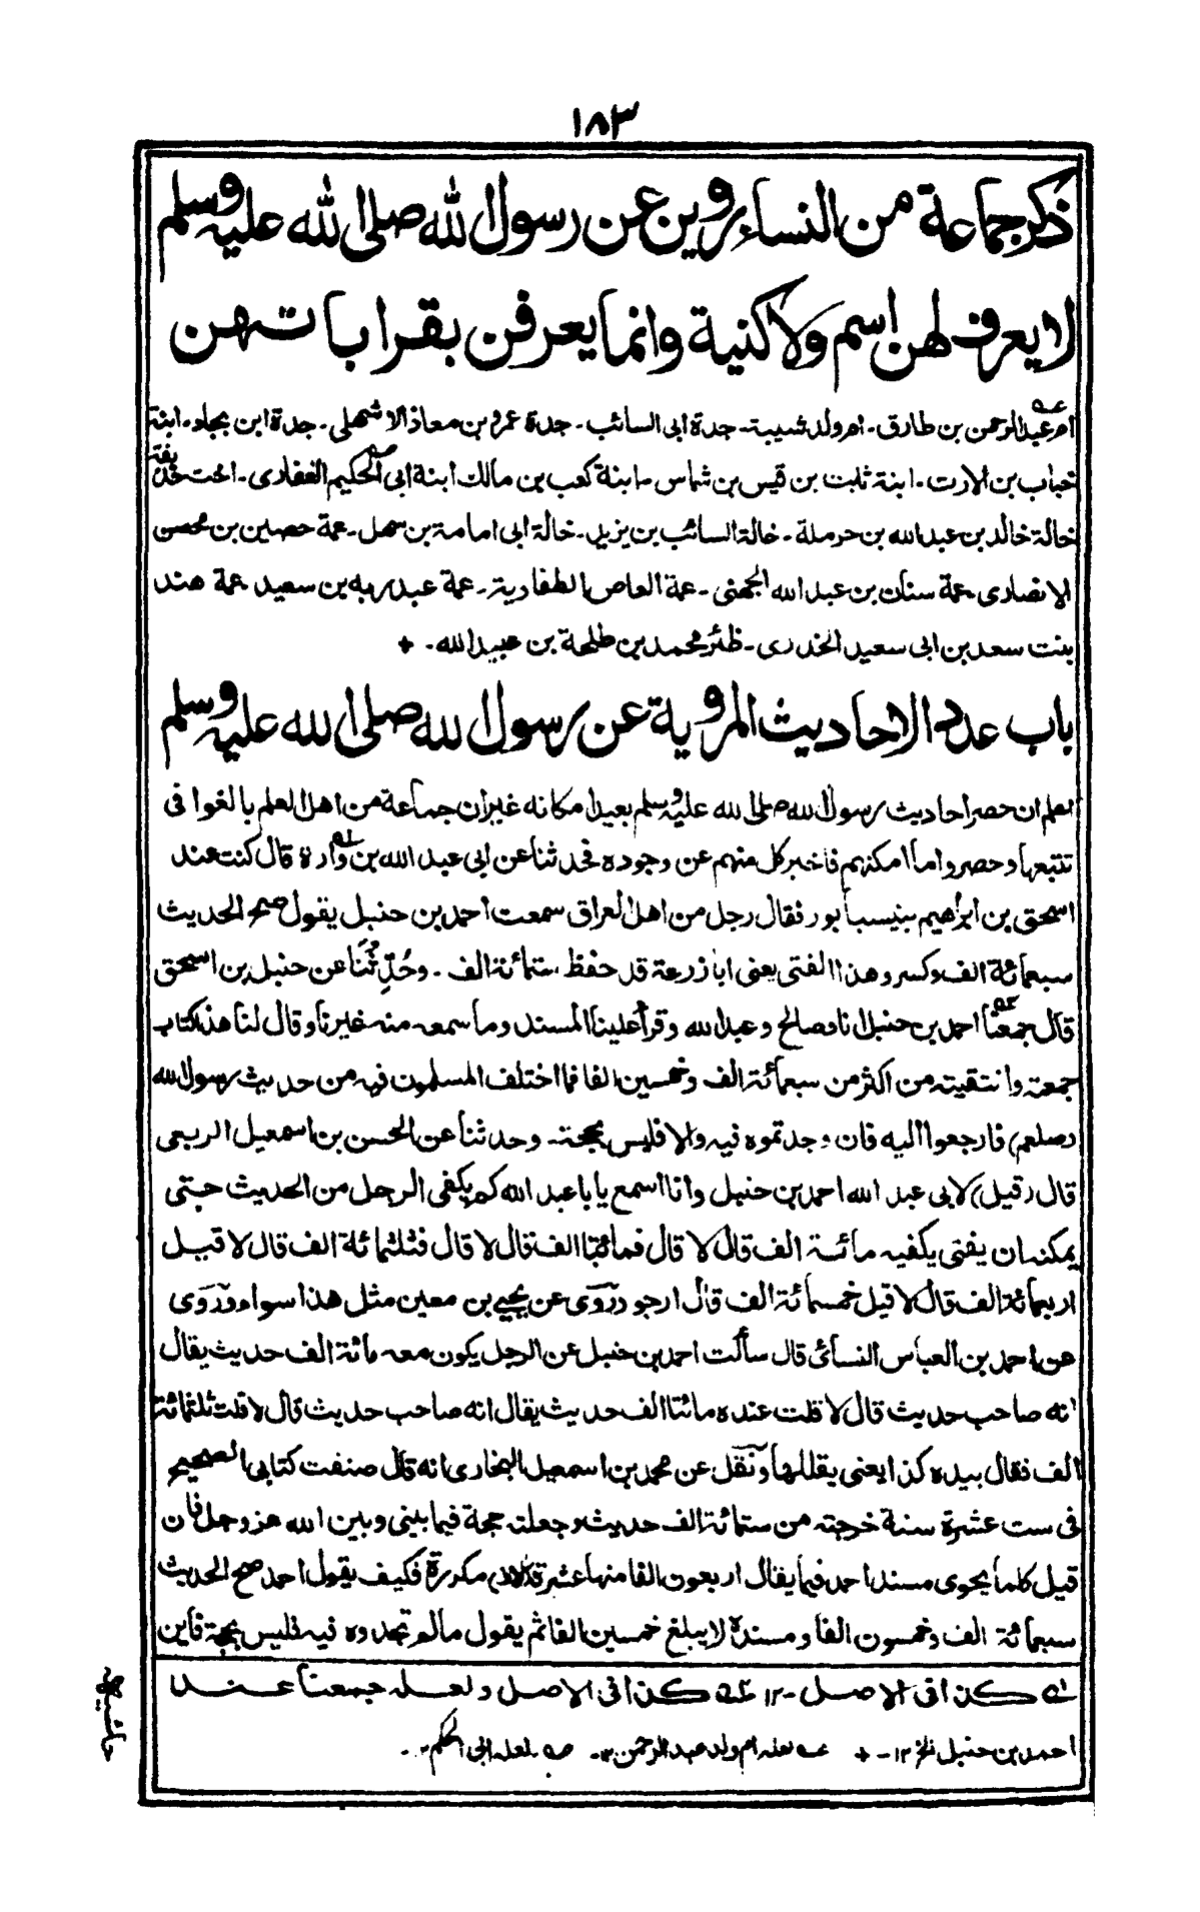 ١٨٣
ذكر جماعة من النساء يروين عن رسول الله صلى الله عليه وسلم
لا يعرف لهن اسم ولا كنية وانما يعرفن بقرابا تهن
ام عبد الرحمن بن طارق ـ ام ولد شيبة ـ جدة ابى السائب ـ جدة عمرو بن معاذ الاشهلى ـ جدة ابن بجاد ـ ابنة
خباب بن الارت ـ ابنة ثابت بن قيس بن شماس ـ ابنة كعب بن مالك ابنة ابى الحكيم الغفارى ـ اخت حذيفة
خالة خالد بن عبد الله بن حرملة ـ خالة السائب بن يزيد ـ خالة ابى امامة بن سهل ـ عمة حصين بن محصن
الانصارى عمة سنان بن عبد الله الجهنى ـ عمة العاص الطفاوية ـ عمة عبد ربه بن سعيد عمة هند
بنت سعد بن ابى سعيد الخدرى ـ ظئر محمد بن طلحة بن عبيد الله ـ +
باب عدد الاحاديث المروية عن رسول الله صلى الله عليه وسلم
اعلم ان حصر احاديث رسول الله صلى الله عليه وسلم بعيد امكانه غير ان جماعة من اهل العلم بالغوا فى
تتبعها وحصروا ما امكنهم فاخبر كل منهم عن وجوده فحدثنا عن ابى عبد الله بن وارة قال كنت عند
اسحق بن ابراهيم بنيسابور فقال رجل من اهل العراق سمعت احمد بن حنبل يقول صح الحديث
سبعمائة الف وكسر وهذا الفتى يعنى ابا زرعة قد حفظ ستمائة الف ـ وحُدِّثنا عن حنبل بن اسحق
قال جمعنا احمد بن حنبل انا وصالح وعبد الله وقرأ علينا المسند وما سمعه منه غيرنا وقال لنا هذا كتاب
جمعته وانتقيته من اكثر من سبعمائة الف وخمسين الفا فما اختلف المسلمون فيه من حديث رسول الله
(صلعم) فارجعوا اليه فان وجدتموه فيه والا فليس بحجة ـ وحدثنا عن الحسن بن اسمعيل الربعى
قال (قيل) لابى عبد الله احمد بن حنبل وانا اسمع يا با عبد الله كم يكفى الرجل من الحديث حتى
يمكنه ان يفتى يكفيه مائة الف قال لا قال فمائتا الف قال لا قال فثلثمائة الف قال لا قيل
اربعمائة الف قال لا قيل خمسمائة الف قال ارجو وروى عن يحيى بن معين مثل هذا سواء وروى
عن احمد بن العباس النسائى قال سألت احمد بن حنبل عن الرجل يكون معه مائة الف حديث يقال
انه صاحب حديث قال لا قلت عنده مائتا الف حديث يقال انه صاحب حديث قال لا قلت ثلثمائة
الف فقال بيده كذا يعنى يقللها ونقل عن محمد بن اسمعيل البخارى انه قال صنفت كتابى الصحيح
فى ست عشرة سنة خرجته من ستمائة الف حديث وجعلته حجة فيما بينى وبين الله عز وجل فان
قيل كلما يحوى مسند احمد فيما يقال اربعون الفا منها عشرة (الاف) مكررة فكيف يقول احمد صح الحديث
سبعمائة الف وخمسون الفا ومسنده لا يبلغ خمسين الفا ثم يقول مالم تجدوه فيه فليس بحجة فاين
له كذا فى الاصل ـ ١٢ كذا فى الاصل ولعله جمعنا عند
احمد بن حنبل الخ ١٢ ـ + عه لعله ام ولد عبد الرحمن ١٢ ـ صه لعله ابى الحكم ١٢ ـ
حاشيه